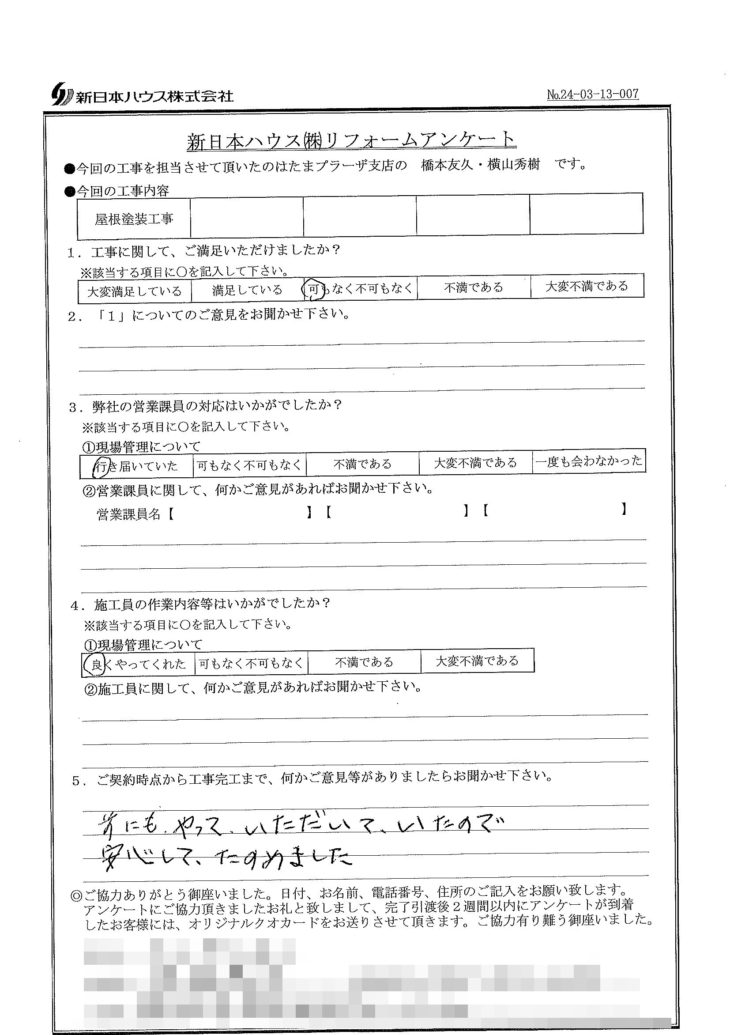 新日本ハウス株式会社
№24-03-13-007
新日本ハウス㈱リフォームアンケート
●今回の工事を担当させて頂いたのはたまプラーザ支店の 橋本友久・横山秀樹 です。
●今回の工事内容
屋根塗装工事
1．工事に関して、ご満足いただけましたか？
※該当する項目に○を記入して下さい。
大変満足している 満足している 可もなく不可もなく 不満である 大変不満である
2．「1」についてのご意見をお聞かせ下さい。
3．弊社の営業課員の対応はいかがでしたか？
※該当する項目に○を記入して下さい。
①現場管理について
行き届いていた 可もなく不可もなく 不満である 大変不満である 一度も会わなかった
②営業課員に関して、何かご意見があればお聞かせ下さい。
営業課員名【 】【 】【 】
4．施工員の作業内容等はいかがでしたか？
※該当する項目に○を記入して下さい。
①現場管理について
良くやってくれた 可もなく不可もなく 不満である 大変不満である
②施工員に関して、何かご意見があればお聞かせ下さい。
5．ご契約時点から工事完工まで、何かご意見等がありましたらお聞かせ下さい。
前にも、やって、いただいて、いたので
安心して、たのめました
◎ご協力ありがとう御座いました。日付、お名前、電話番号、住所のご記入をお願い致します。
アンケートにご協力頂きましたお礼と致しまして、完了引渡後2週間以内にアンケートが到着
したお客様には、オリジナルクオカードをお送りさせて頂きます。ご協力有り難う御座いました。